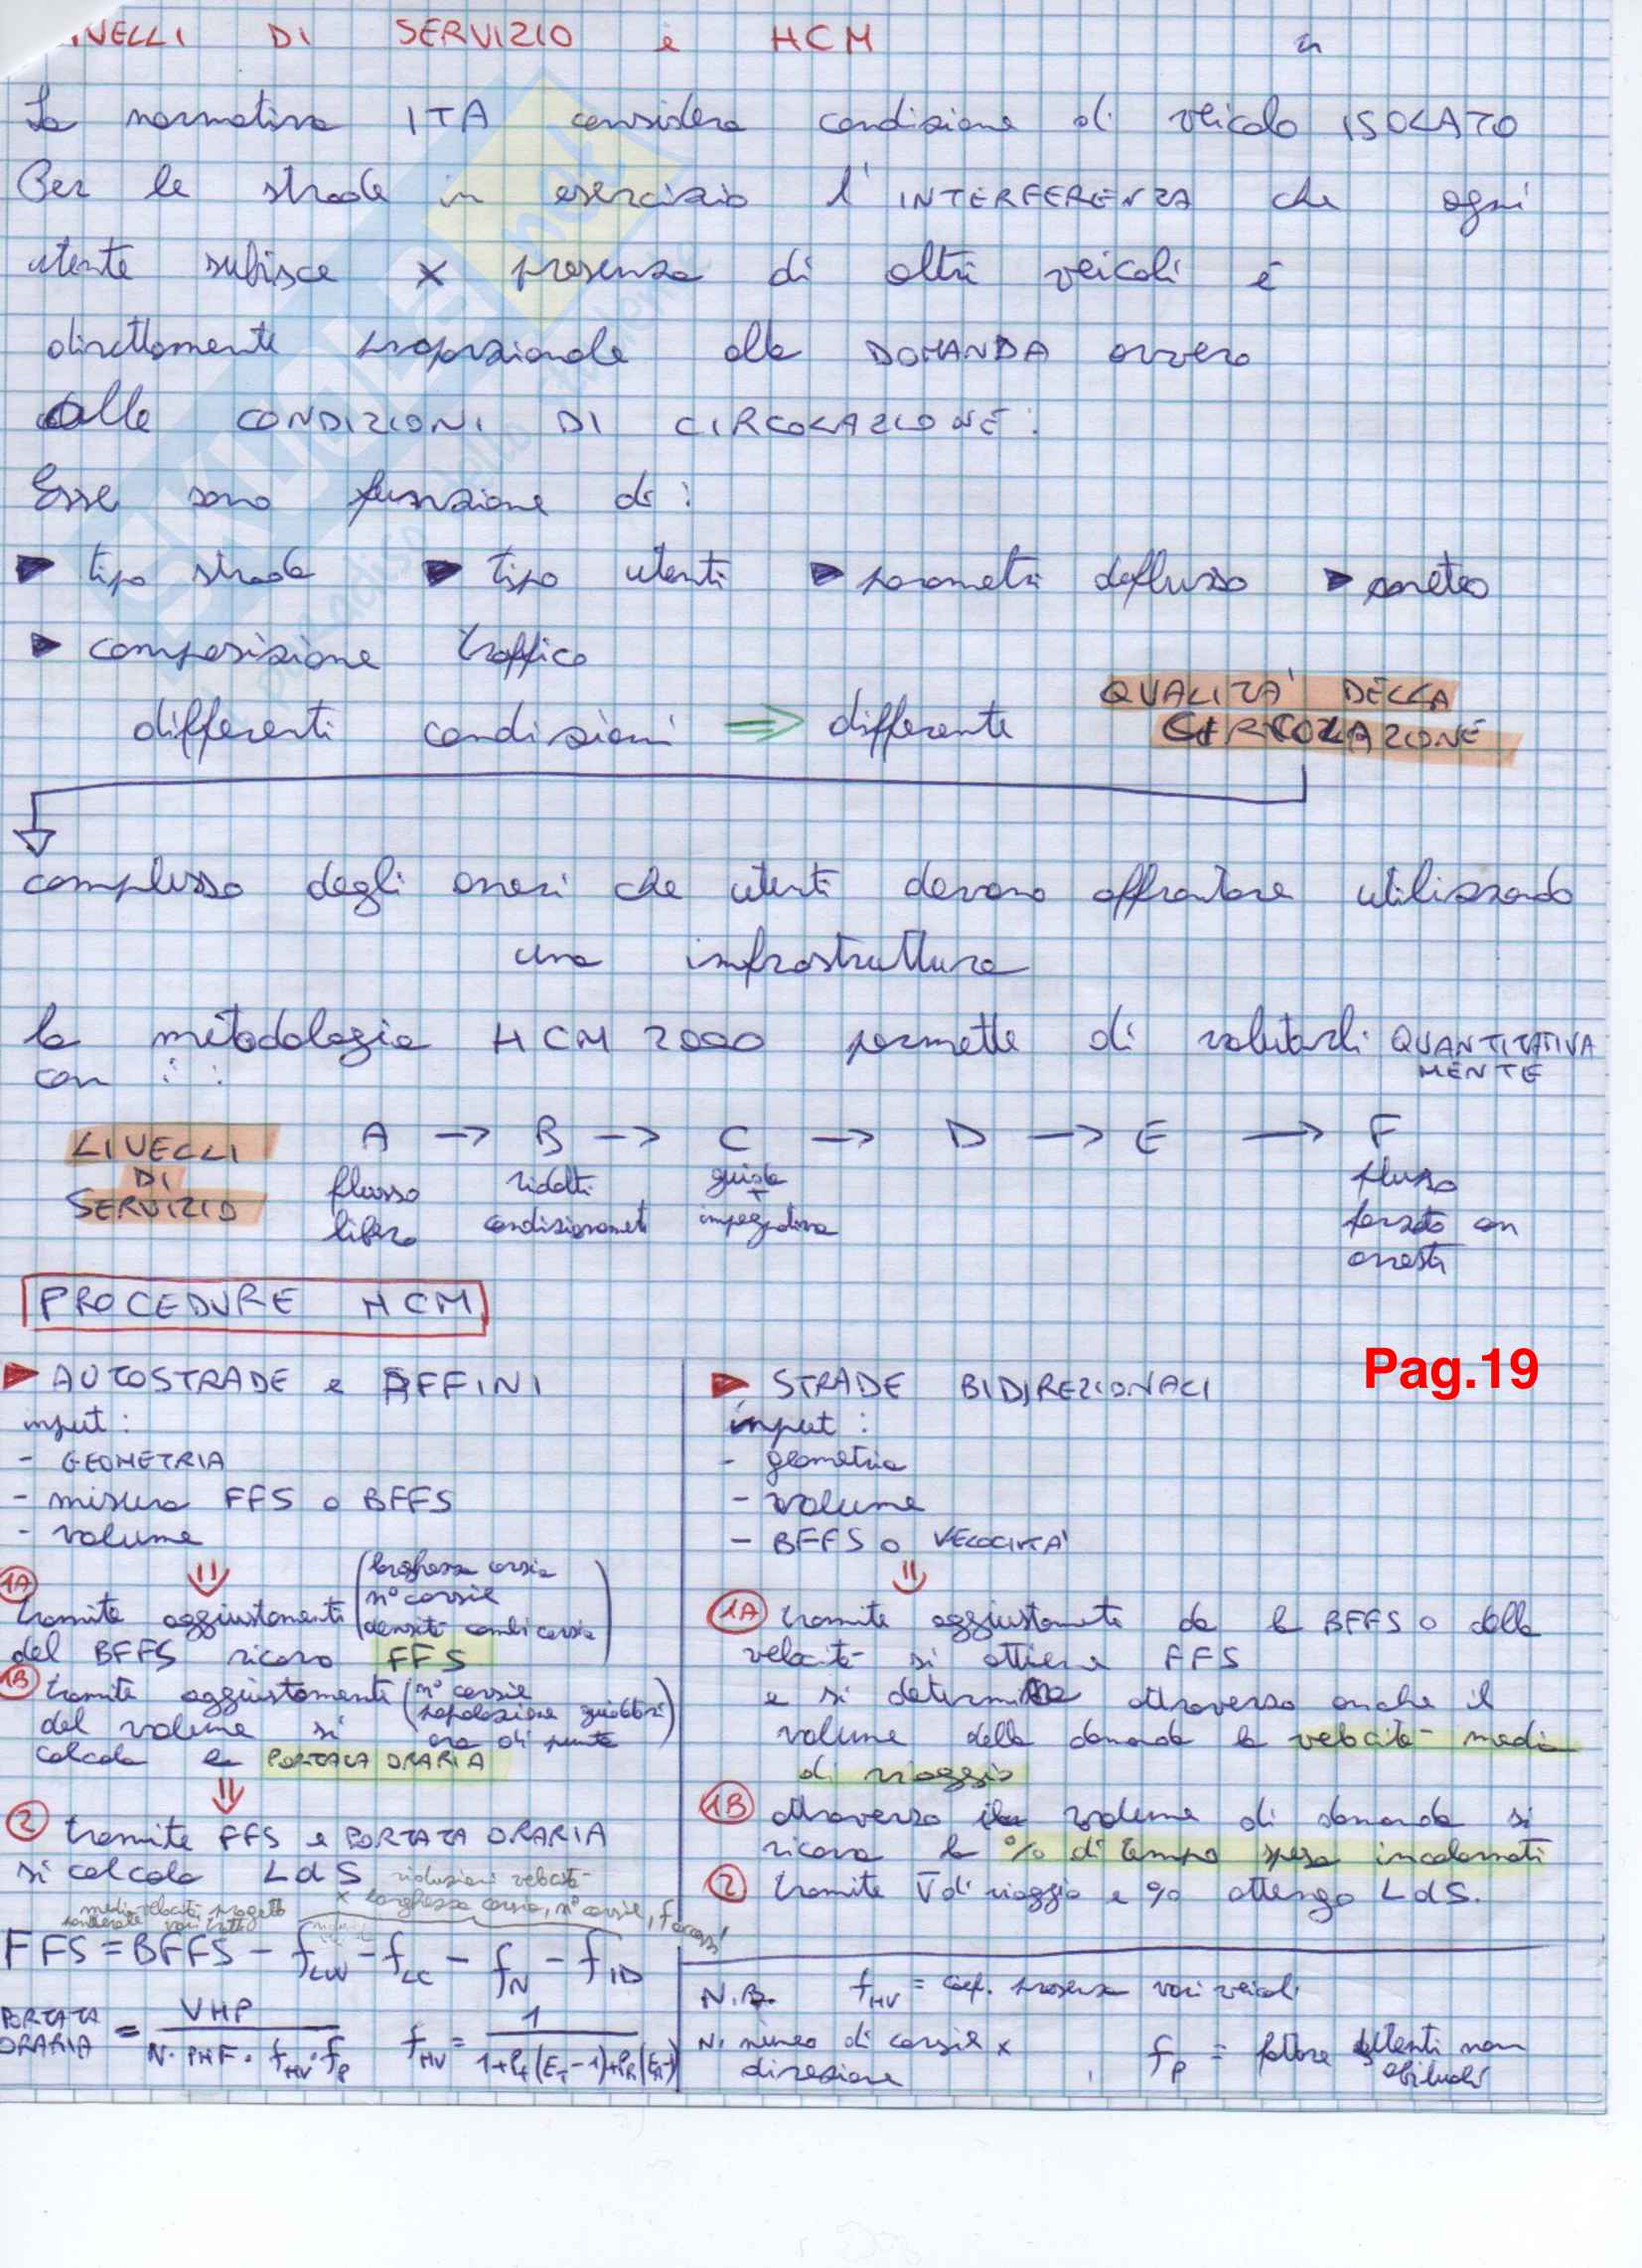 LIVELLI DI SERVIZIO e HCM
La normativa ITA considera condizione di veicolo ISOLATO
Per le strade in esercizio l'INTERFERENZA che ogni
utente subisce x presenza di altri veicoli è
direttamente proporzionale alla DOMANDA ovvero
alle CONDIZIONI DI CIRCOLAZIONE:
Esse sono funzione di:
▶ tipo strada ▶ tipo utenti ▶ parametri deflusso ▶ meteo
▶ composizione traffico
differenti condizioni ⇒ differente QUALITA' DELLA
CIRCOLAZIONE
complesso degli oneri che utenti devono affrontare utilizzando
una infrastruttura
la metodologia HCM 2000 permette di valutarli QUANTITATIVA
con : : MENTE
LIVELLI DI SERVIZIO
A → B → C → D → E → F
flusso libero
ridotti condizionamenti
guida + impegnativa
flusso forzato con arresti
PROCEDURE HCM
▶ AUTOSTRADE e AFFINI
input:
- GEOMETRIA
- misura FFS o BFFS
- volume
1A tramite aggiustamenti (larghezza corsia
n° corsie
densità cambi corsia)
del BFFS ricavo FFS
1B tramite aggiustamento (n° corsie
popolazione guidatori
ora di punta)
del volume si
calcola la PORTATA ORARIA
2 tramite FFS e PORTATA ORARIA
si calcola LdS
riduzioni velocità
x larghezza corsia, n° corsie,
media velocità progetto
ponderate vari tratti
FFS = BFFS - fLW - fLC - fN - fID
PORTATA ORARIA = VHP / N · PHF · fHV · fP
fHV = 1 / 1+PT(ET-1)+PR(ER-1)
▶ STRADE BIDIREZIONALI
input:
- geometria
- volume
- BFFS o VELOCITA'
1A tramite aggiustamenti da la BFFS o dalla
velocità si ottiene FFS
e si determina attraverso anche il
volume della domanda la velocità media
di viaggio
1B attraverso il volume di domanda si
ricava la % di tempo speso incolonnati
2 tramite V̄ di viaggio e % ottengo LdS.
N.B. fHV = coef. presenza vari veicoli
N. numero di corsie x
direzione
fP = fattore utenti non
abituali
Pag.19